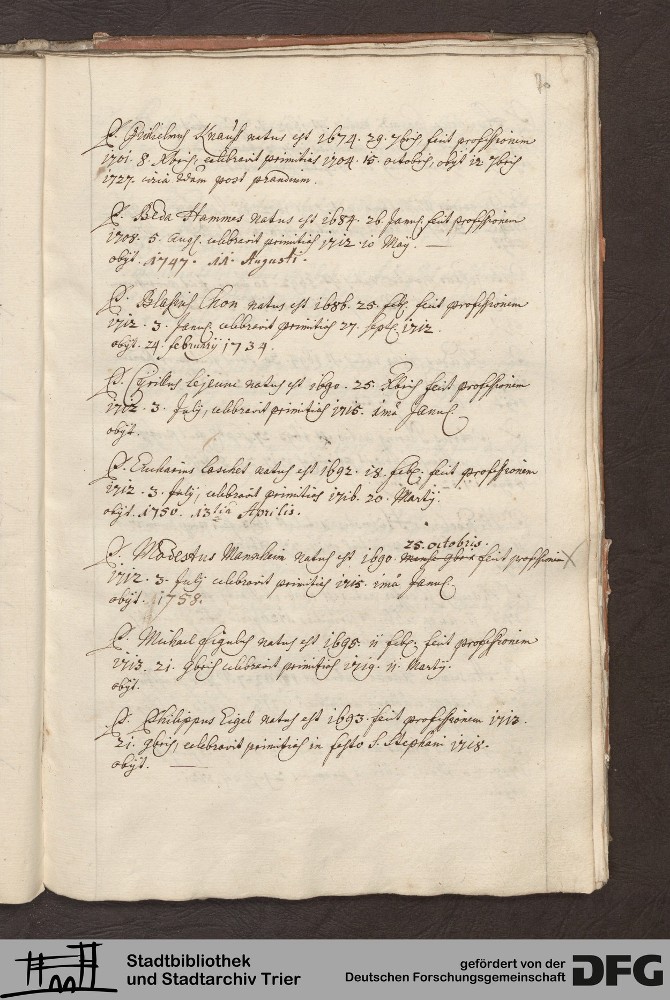 70
P. Guilielmus Knauff natus est 1674. 29. 7bris, fecit professionem
1701. 8. Xbris, celebravit primitias 1704. 15. octobris, obijt 12 7bris
1727. circa 2dam post prandium.
P. Beda Hammes natus est 1684. 26 Janu. fecit professionem
1708. 5. Aug. celebravit primitias 1712. 10 Maij.
obijt. 1747. 11. Augusti.
P. Blasius Chon natus est 1686. 25. feb. fecit professionem
1712. 3. Janu. celebravit primitias 27. sept. 1712.
obijt. 24. february 1734.
P. Cyrillus Lejeune natus est 1690. 25. Xbris fecit professionem
1712. 3. Julij, celebravit primitias 1715. imâ Janu.
obijt.
P. Eucharius Laschet natus est 1692. 18. feb. fecit professionem
1712. 3. Julij, celebravit primitias 1716. 20. Martij.
obijt. 1750. 13tia Aprilis.
25. octobris.
P. Modestus Manxheim natus est 1690. mense 9bris fecit professionem X
1712. 3. Julij celebravit primitias 1715. imâ Janu.
obijt. 1758.
P. Michael natus est 1695. 11 feb. fecit professionem
1713. 21. 9bris celebravit primitias 1719. 11 Martij.
obijt.
P. Philippus Eigel natus est 1693. fecit professionem 1713.
21. 9bris, celebravit primitias in festo S. Stephani 1718.
obijt.
Stadtbibliothek
und Stadtarchiv Trier
gefördert von der
Deutschen Forschungsgemeinschaft
DFG